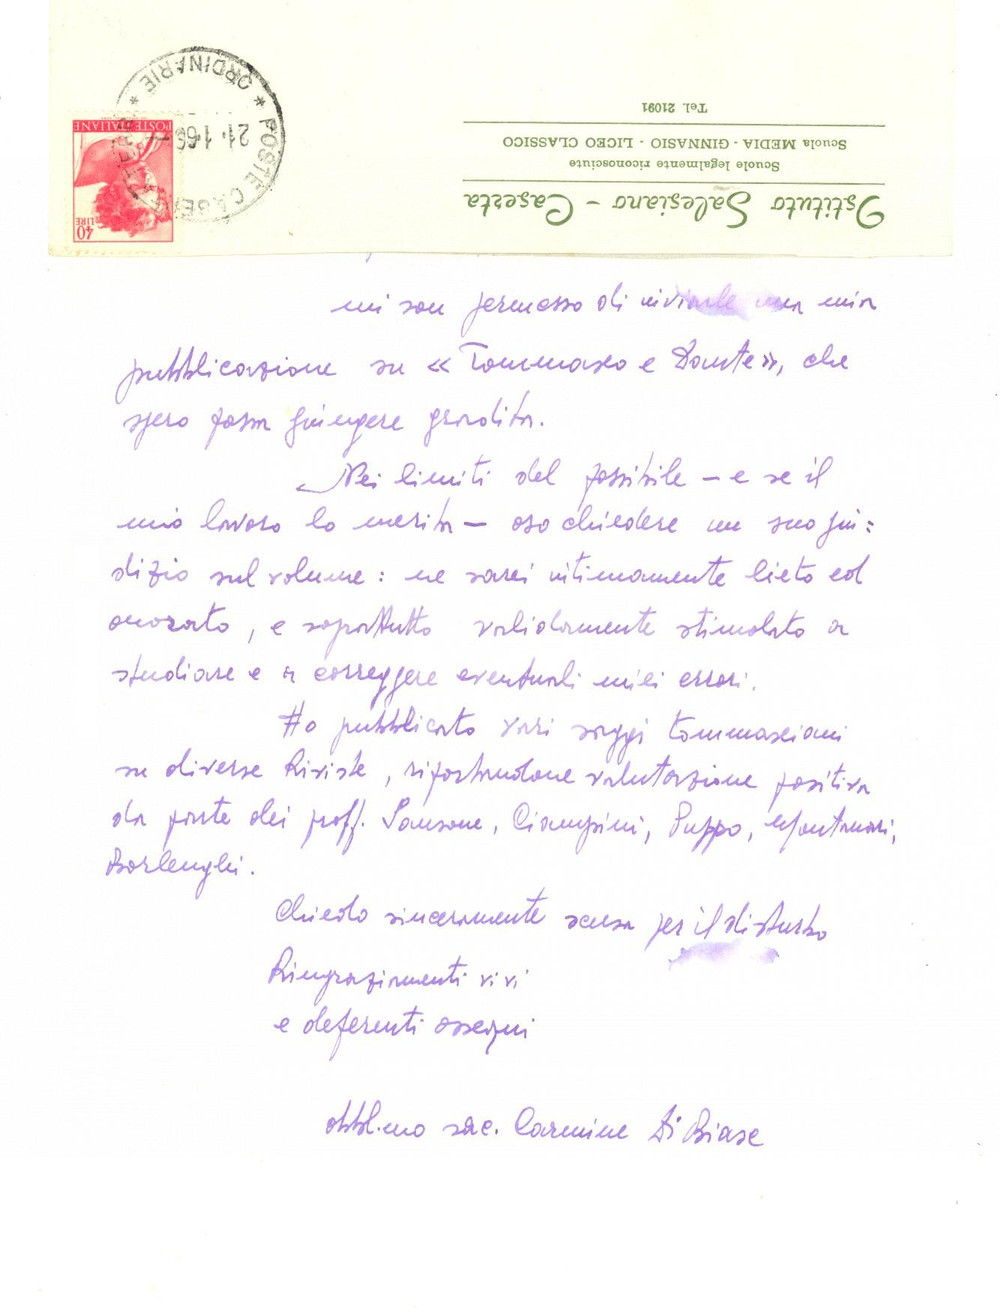 Istituto Salesiano - Caserta
Scuole legalmente riconosciute
Scuola MEDIA - GINNASIO - LICEO CLASSICO
Tel. 21091
40 LIRE
POSTE ITALIANE
POSTE CASERTA * ORDINARIE *
21.1.66
mi son permesso di inviarle una mia
pubblicazione su « Tommaseo e Dante», che
spero possa giungere gradita.
Nei limiti del possibile – e se il
mio lavoro lo merita – oso chiedere un suo giu=
dizio sul volume: ne sarei intimamente lieto ed
onorato, e soprattutto validamente stimolato a
studiare e a correggere eventuali miei errori.
Ho pubblicato vari saggi tommaseiani
su diverse Riviste, riportandone valutazione positiva
da parte dei proff. Sansone, Ciampini, Puppo,
Borlenghi.
Chiedo sinceramente scusa per il disturbo
Ringraziamenti vivi
e deferenti ossequi
obbl.mo sac. Carmine Di Biase